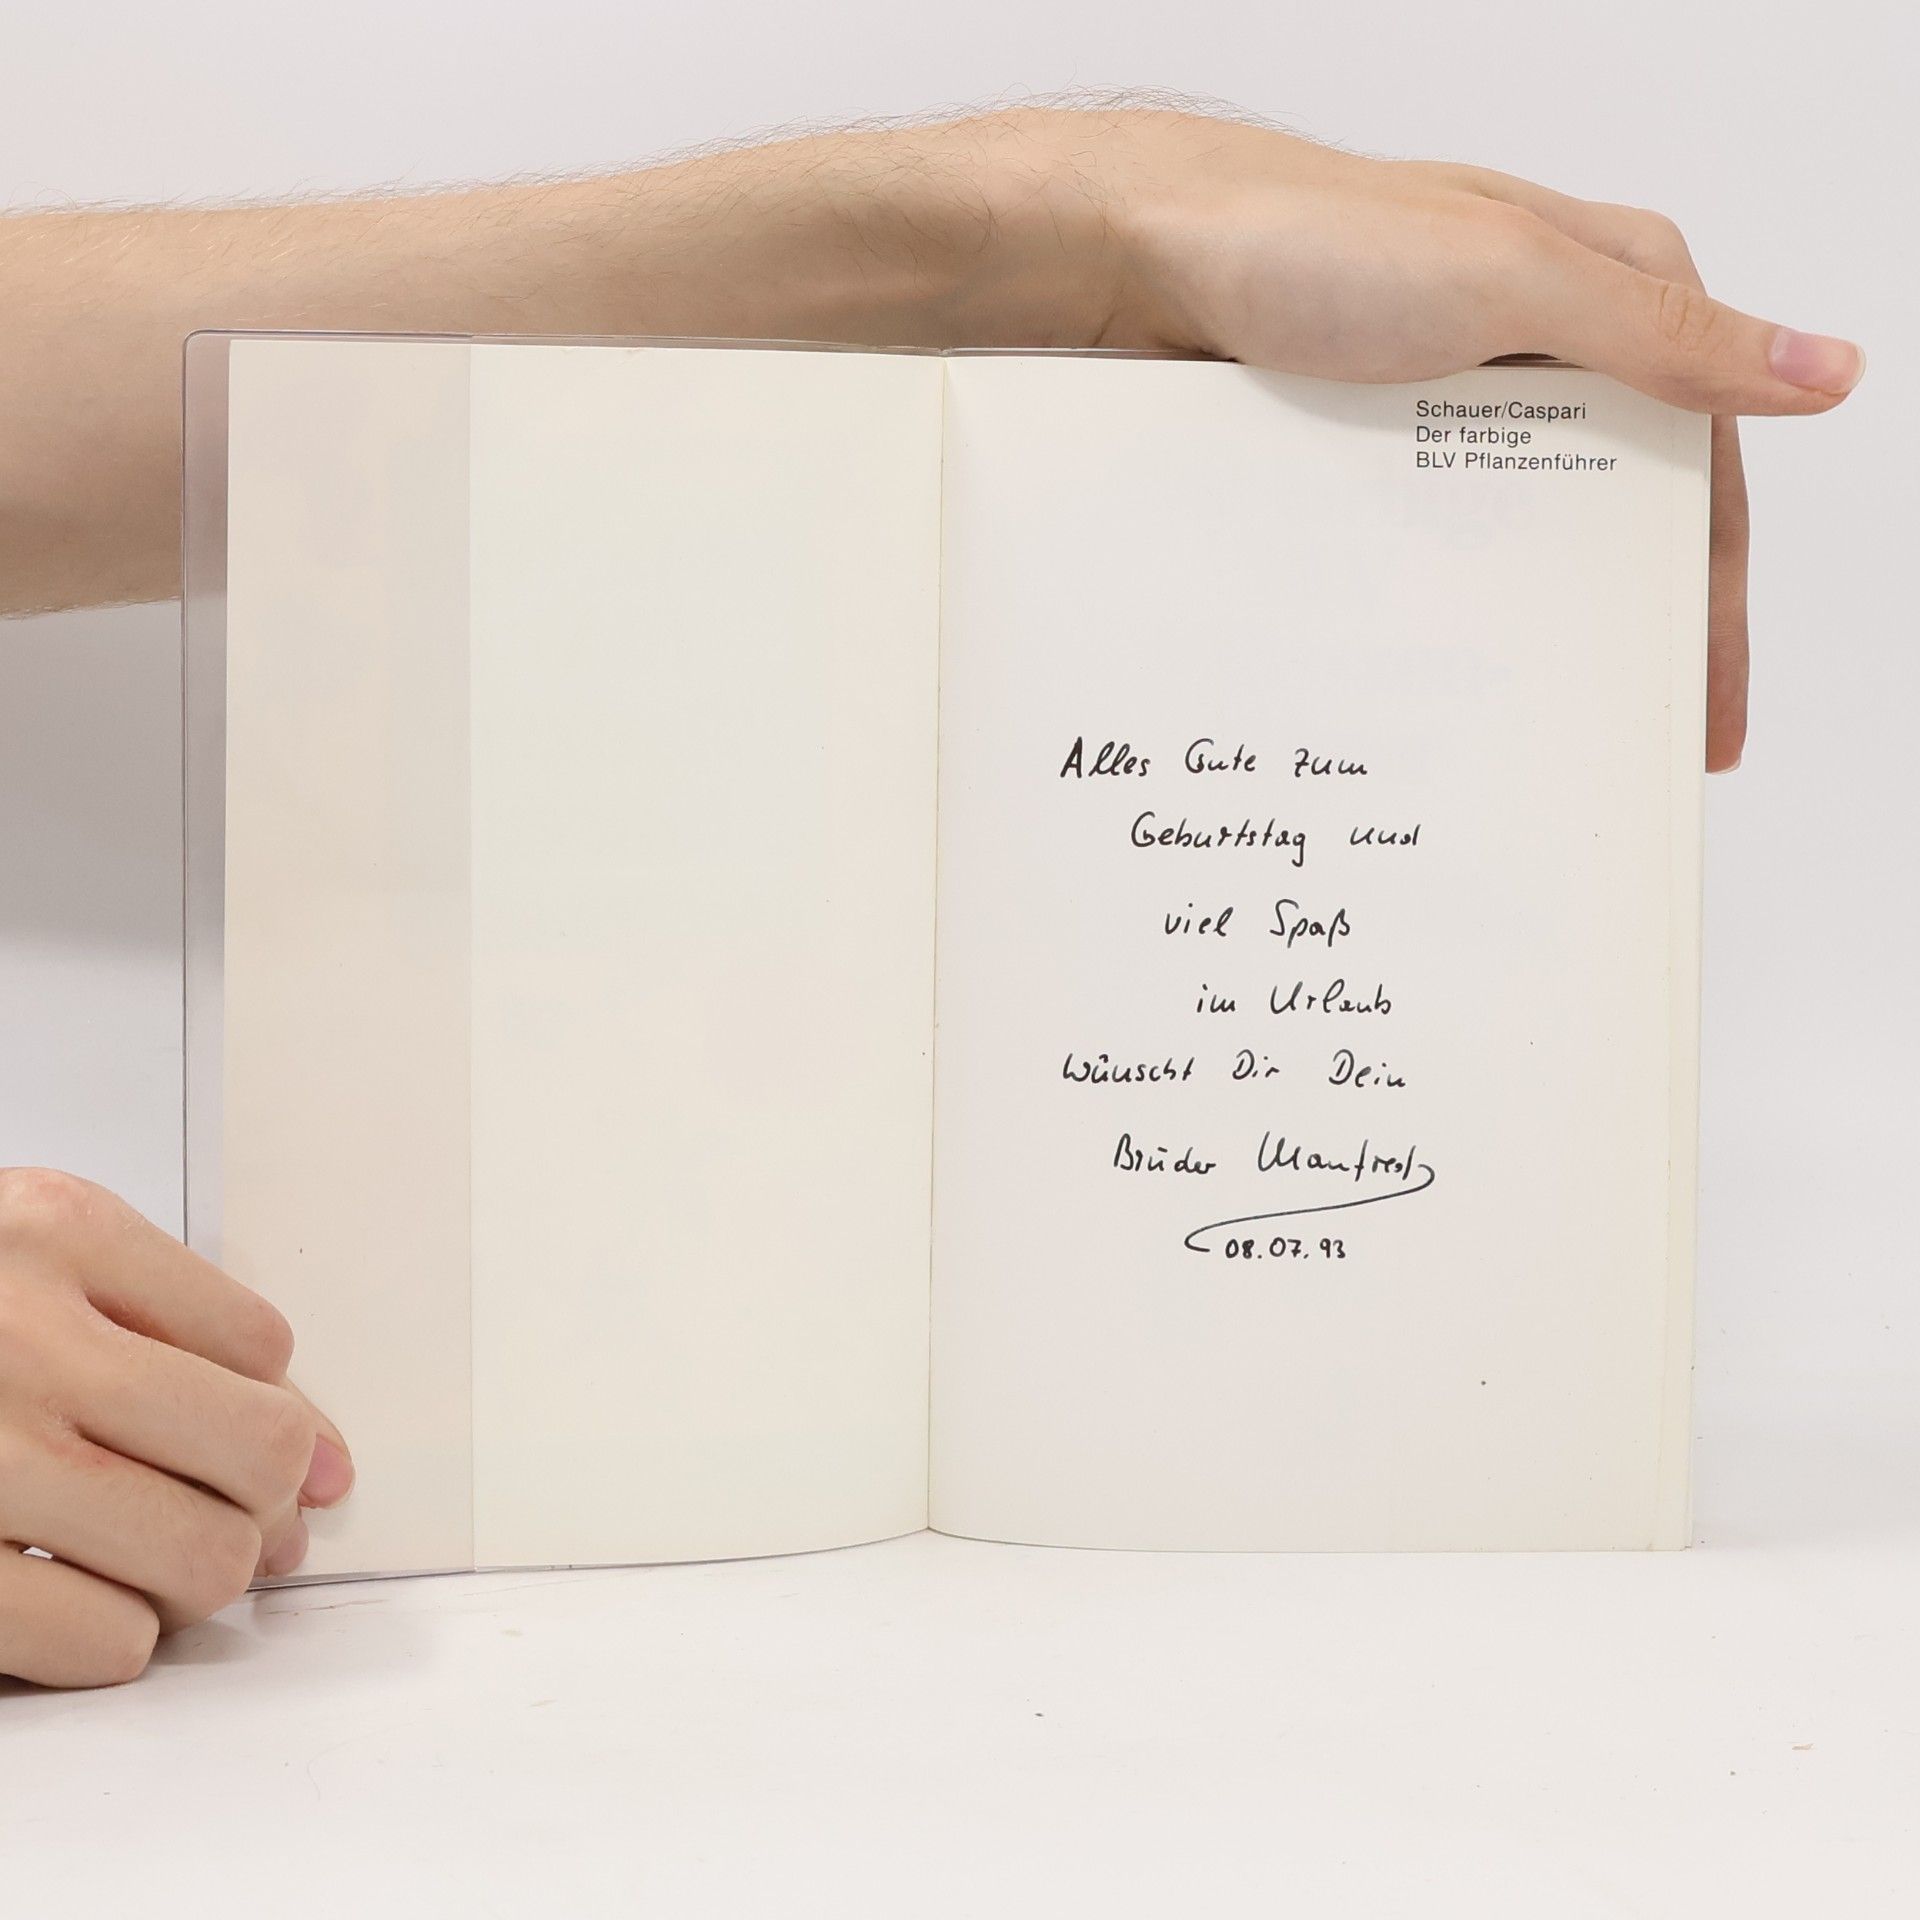 Schauer/Caspari
Der farbige
BLV Pflanzenführer
Alles Gute zum
Geburtstag und
viel Spaß
im Urlaub
wünscht Dir Dein
Bruder Manfred
08.07.93